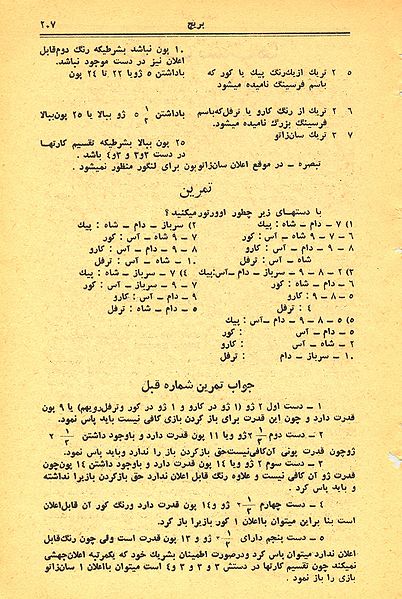 بریج
۲۰۷
۱۰ پون نباشد بشرطیکه رنگ دوم قابل
اعلان نیز در دست موجود نباشد.
۵ ۲ تریک ازیک رنگ پیك یا کور که باداشتن ۵ ژو یا ۲۲ تا ۲۴ پون
باسم فرسینگ نامیده میشود
۶ ۲ تریك از رنگ کارو یا ترفل که باسم باداشتن ۱/۲ ۵ ژو ببالا یا ۲۵ پون ببالا
فرسینگ بزرگ نامیده میشود.
۷ ۲ تریك سان‌زاتو ۲۵ پون ببالا بشرطیکه تقسیم کارتها
در دست ۳ و ۳ و ۳ و ۴ باشد .
تبصره – در موقع اعلان سان‌زاتو پون برای لنگور منظور نمیشود .
تمرین
با دستهای زیر چطور اوورتور میکنید ؟
۱) ۷ – دام – شاه : پیك
۶ – ۷ – ۹ شاه – آس : کور
۸ – ۹ – دام – آس : کارو
شاه – آس : ترفل
۲) سرباز – دام – شاه : پیك
۷ – ۹ شاه – آس : کور
۸ – ۹ – دام – آس : کارو
۱۰ – شاه – آس : ترفل
۳) ۲ – ۸ – ۹ – سرباز – دام – آس: پیك
۶ – دام – شاه : کور
۵ – ۸ – ۹ : کارو
۴ : ترفل
۴) ۷ – سرباز – شاه : پیك
۷ – سرباز – آس : کور
۹ – دام – آس : کارو
۵ – دام – شاه : ترفل
۵) ۵ – ۸ – ۹ – دام – آس : پیك
۵ – دام – آس : کور
۲ – شاه – آس : کارو
۱۰ – سرباز – دام : ترفل
جواب تمرین شماره قبل
۱ – دست اول ۲ ژو (۱ ژو در کارو و ۱ ژو در کور وترفل رویهم) یا ۹ پون
قدرت دارد و چون این قدرت برای باز کردن بازی کافی نیست باید پاس نمود.
۲ – دست دوم ۱/۲ ۲ ژو ویا ۱۱ پون قدرت دارد و باوجود داشتن ۱/۲ ۲
ژوچون قدرت پونی آن کافی نیست حق باز کردن باز را ندارد وباید پاس نمود.
۳ – دست سوم ۲ ژو ویا ۱۴ پون قدرت دارد و باوجود داشتن ۱۴ پون چون
قدرت ژو آن کافی نیست و علاوه رنگ قابل اعلان ندارد حق بازکردن بازیرا نداشته
و باید پاس کرد .
۴ – دست چهارم ۱/۲ ۲ ژو و ۱۴ پون قدرت دارد ورنگ کور آن قابل اعلان
است بنا براین میتوان بااعلان ۱ کور بازیرا باز کرد.
۵ – دست پنجم دارای ۱/۲ ۲ ژو و ۱۳ پون قدرت است وفی چون رنگ قابل
اعلان ندارد میتوان پاس کرد ودرصورت اطمینان بشریك خود که یکمرتبه اعلان چهشی
نمیکند چون تقسیم کارتها در دستش ۳ و ۳ و ۳ و ۴ است میتوان بااعلان ۱ سان‌زاتو
بازی را باز نمود .